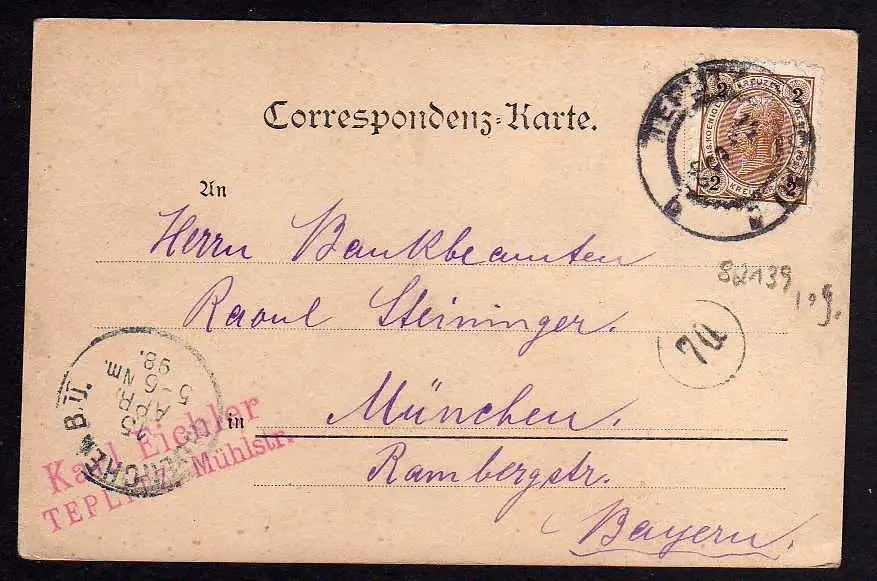 Correspondenz-Karte.
TEPLITZ
2 KREUZER 2
2 KREUZER 2
An
Herrn Bankbeamten
Raoul Steininger.
in München.
Rambergstr.
Bayern.
70
MÜNCHEN B.U.
5 APR.
5-6 Nm.
98.
Karl Eichler
TEPLITZ, Mühlstr.